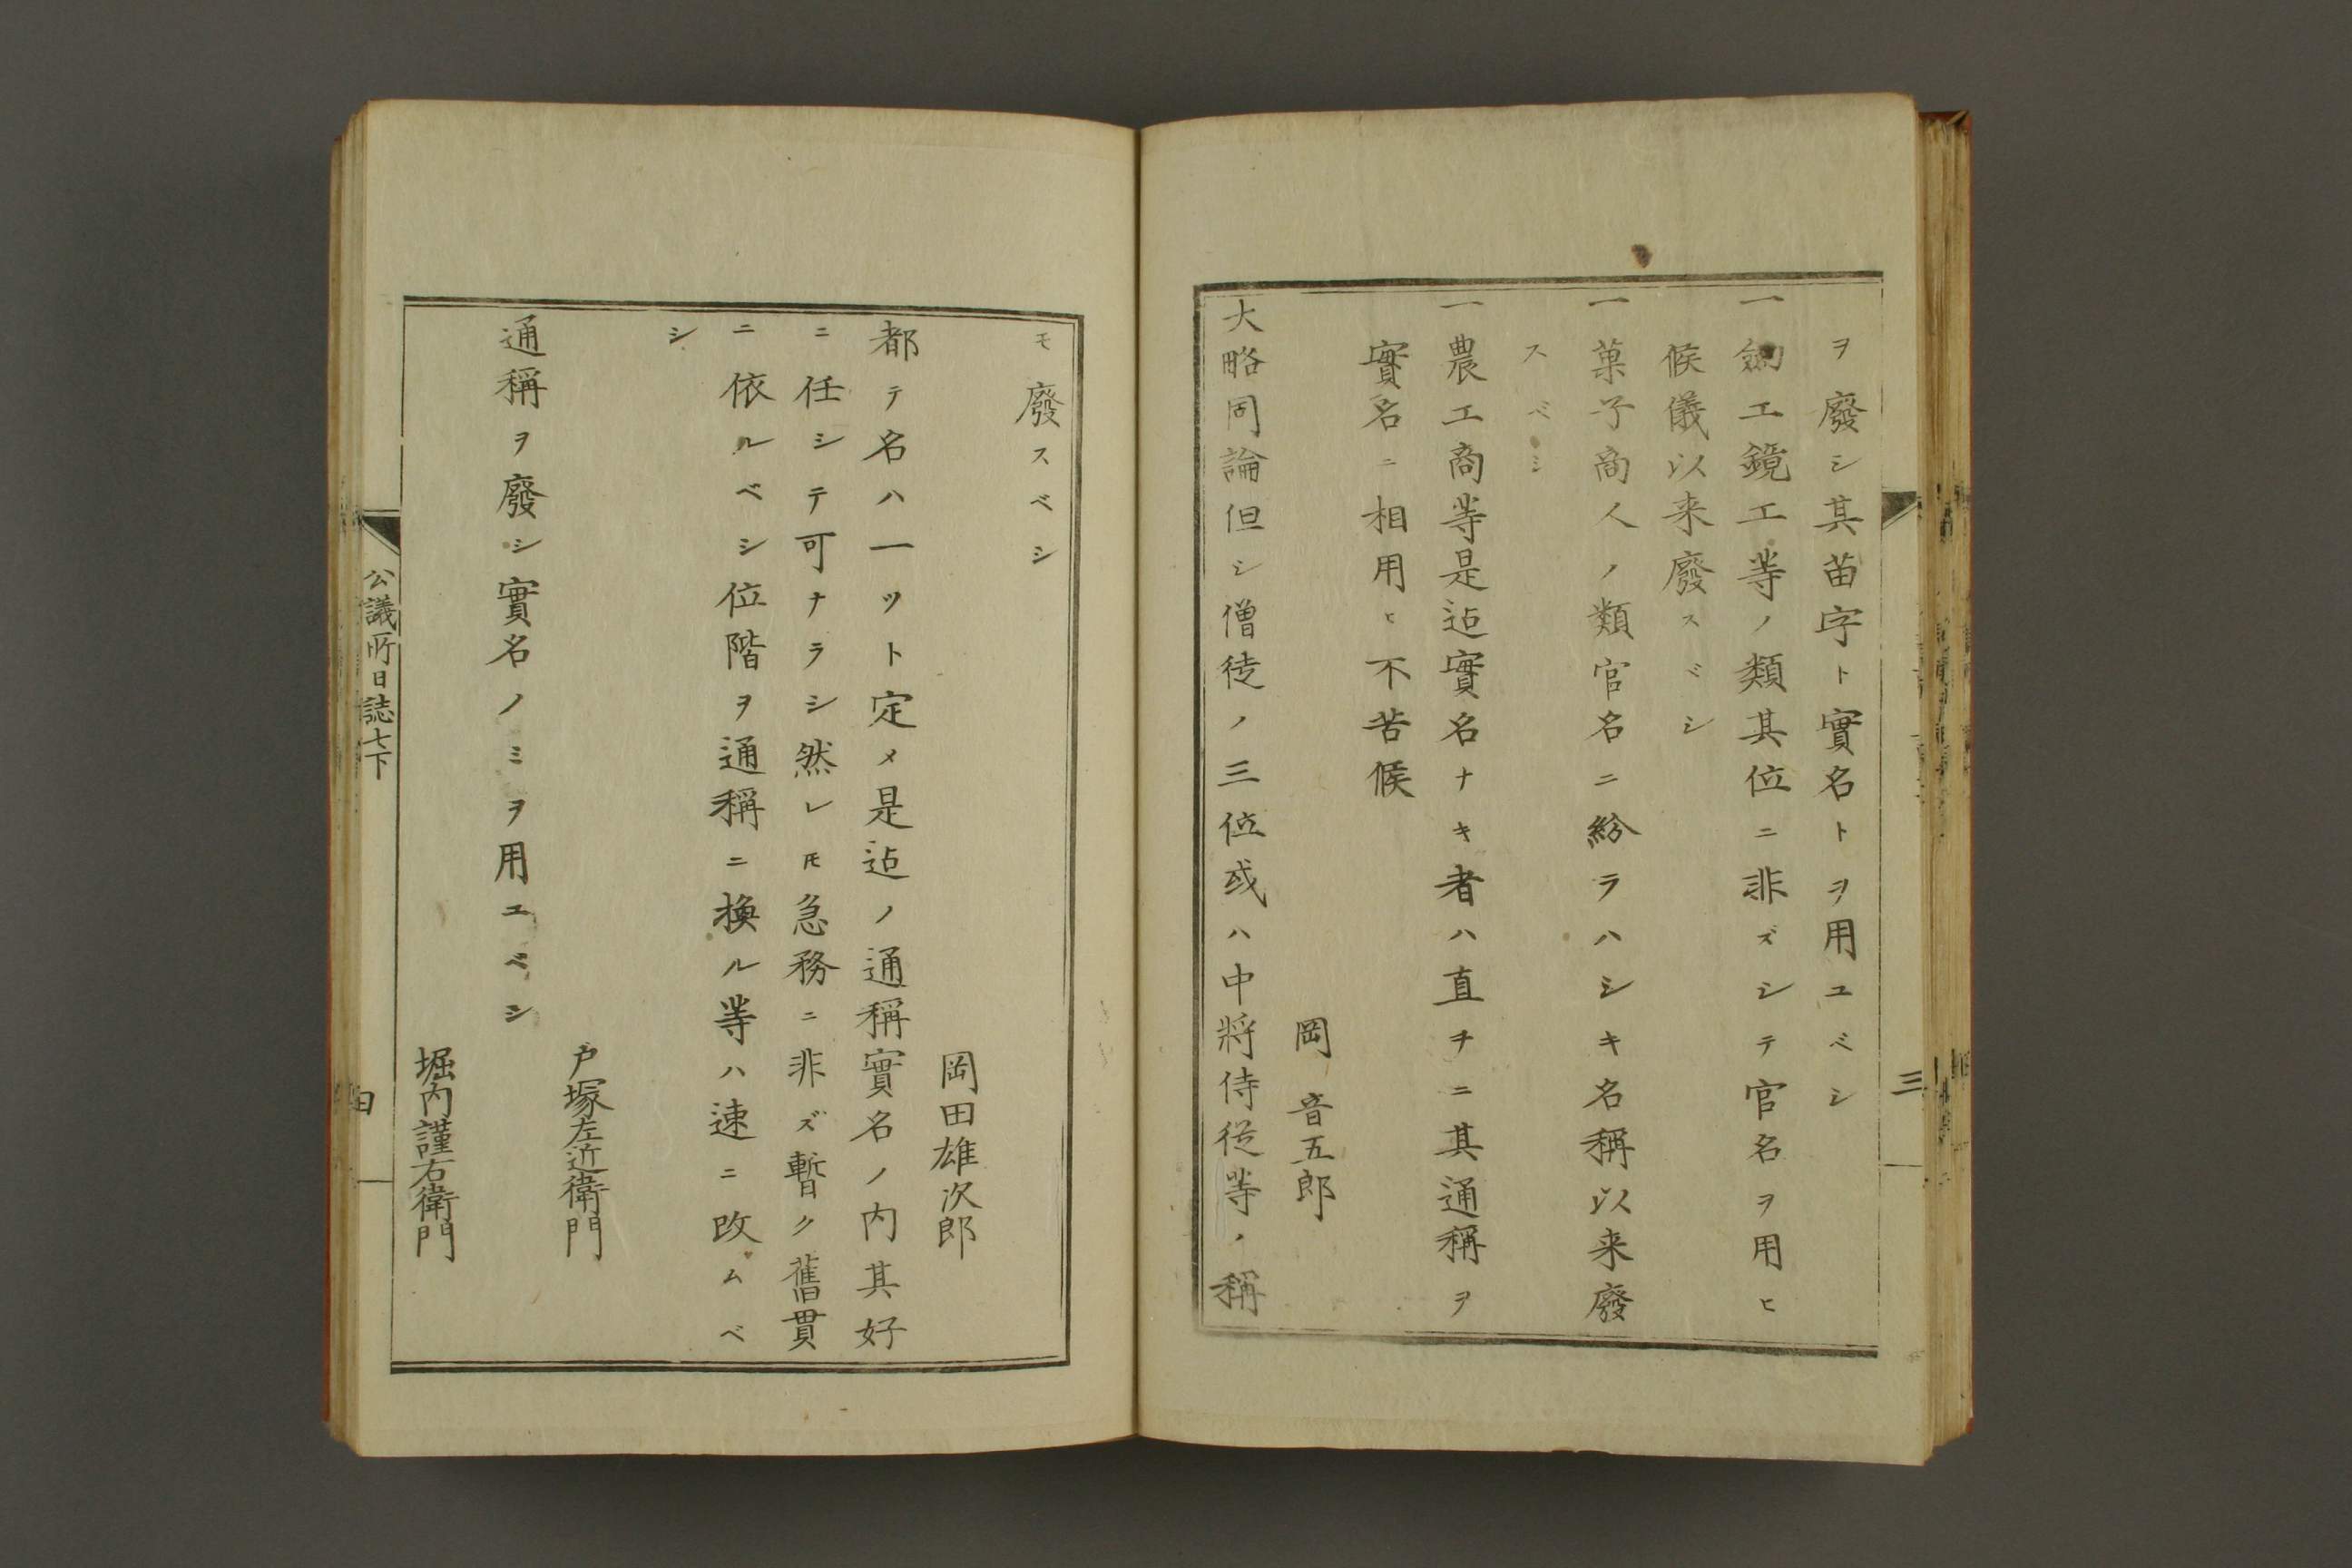 ヲ廢シ其苗字ト實名トヲ用ユベシ
一劔工鏡工等ノ類其位ニ非ズシテ官名ヲ用ヒ
候儀以来廢スベシ
一菓子商人ノ類官名ニ紛ラハシキ名稱以来廢
スベシ
一農工商等是迠實名ナキ者ハ直チニ其通稱ヲ
實名ニ相用ヒ不苦候
岡音五郎
大略同論但シ僧徒ノ三位或ハ中將侍従等ノ稱
三
モ廢スベシ
岡田雄次郎
都テ名ハ一ツト定メ是迠ノ通稱實名ノ内其好
ニ任シテ可ナラシ然レ𪜈急務ニ非ズ暫ク舊貫
ニ依ルベシ位階ヲ通稱ニ換ル等ハ速ニ改ムベ
シ
戸塚左近衛門
通稱ヲ廢シ實名ノミヲ用ユベシ
堀内謹右衛門
公議所日誌七下